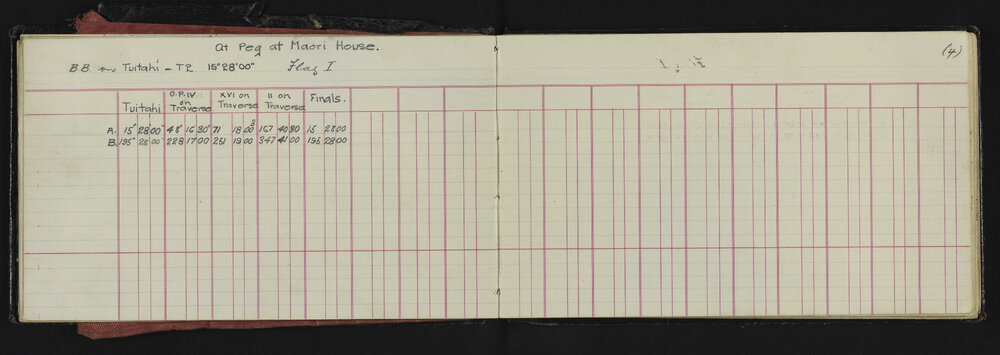 At Peg at Maori House.
(4)
BB on Tuitahi - T2 15°28'00" Flag I
Tuitahi O.P. IV on Traverse XVI on Traverse II on Traverse Finals.
A. 15° 28' 00" 48 16 30 71 18 00 167 40 30 15 28 00
B. 195° 28' 00" 228 17 00 251 19 00 347 41 00 195 28 00